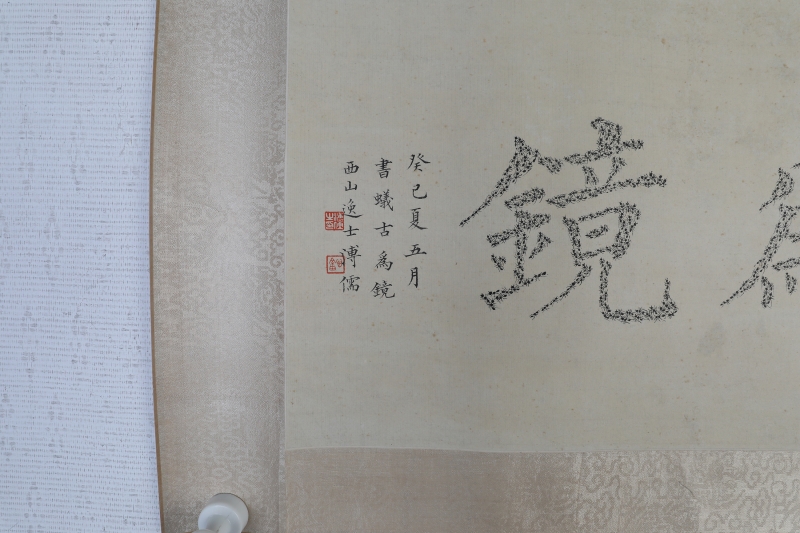 鏡
癸巳夏五月
書蟻古為鏡
西山逸士溥儒